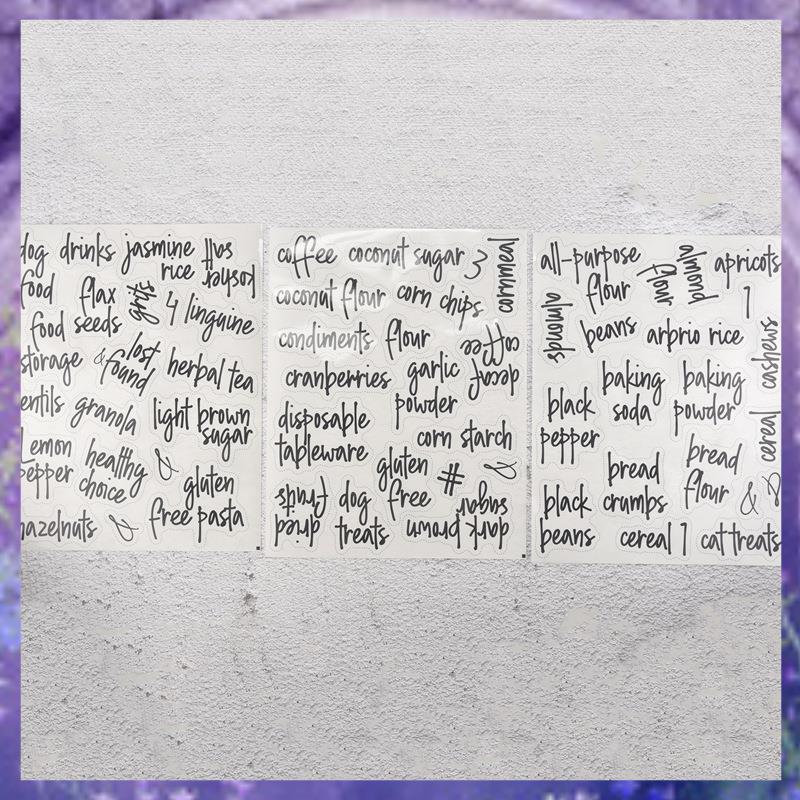 dog food
drinks
jasmine rice
kosher salt
food storage
flax seeds
grits
4
linguine
lost & found
herbal tea
lentils
granola
light brown sugar
lemon pepper
healthy choice
&
gluten free pasta
hazelnuts
&
coffee
coconut sugar
3
cornmeal
coconut flour
corn chips
condiments
flour
decaf coffee
cranberries
garlic powder
disposable tableware
corn starch
gluten free
#
&
dried fruits
dog treats
dark brown sugar
all-purpose flour
almond flour
apricots
1
almonds
beans
arbrio rice
cashews
baking soda
baking powder
black pepper
cereal
bread crumbs
bread flour
&
&
black beans
cereal
1
cat treats